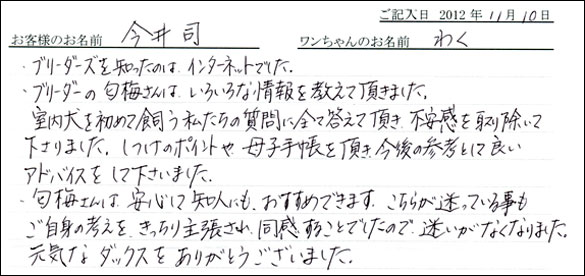 ご記入日 2012年11月10日
お客様のお名前 今井 司 ワンちゃんのお名前 わく
・ブリーダーズを知ったのは、インターネットでした。
・ブリーダーの匂梅さんは、いろいろな情報を教えて頂きました。
室内犬を初めて飼う私たちの質問に全て答えて頂き、不安感を取り除いて
下さりました。しつけのポイントや、母子手帳を頂き、今後の参考として良い
アドバイスをして下さいました。
・匂梅さんは、安心して知人にも、おすすめできます。こちらが迷っている事も
ご自身の考えを、きっちり主張され、同感することでしたので、迷いがなくなりました。
元気なダックスをありがとうございました。